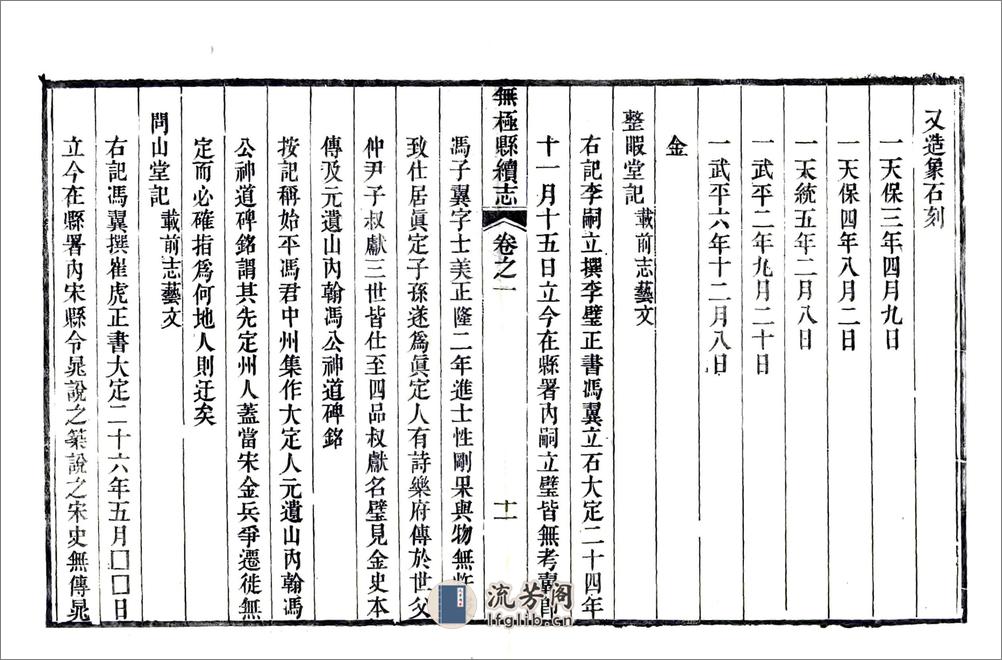 又造象石刻
一天保三年四月九日
一天保四年八月二日
一大統五年二月八日
一武平二年九月二十日
一武平六年十二月八日
金
整暇堂記 載前志藝文
右記李嗣立撰李璧正書馮翼立石大定二十四年
十一月十五日立今在縣署內嗣立璧皆無考翼卽
無極縣續志 卷之一 十一
馮子翼字士美正隆二年進士性剛果與物無忤
致仕居眞定子孫遂爲眞定人有詩樂府傳於世父
仲尹子叔獻三世皆仕至四品叔獻名璧見金史本
傳及元遺山內翰馮公神道碑銘
按記稱始平馮君中州集作大定人元遺山內翰馮
公神道碑銘謂其先定州人蓋當宋金兵爭遷徙無
定而必確指爲何地人則迂矣
問山堂記 載前志藝文
右記馮翼撰崔虎正書大定二十六年五月□□日
立今在縣署內宋縣令晁說之築說之宋史無傳晁
流芳阁
lfglib.cn